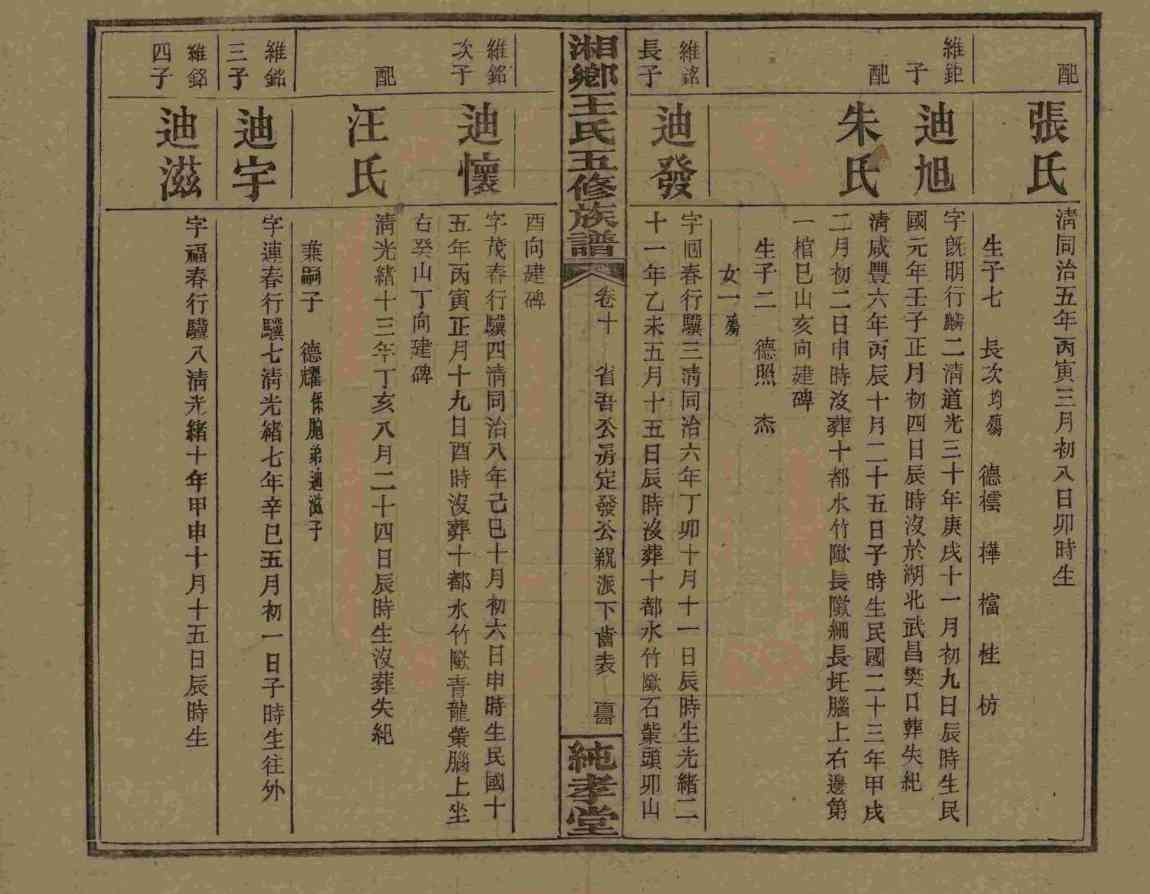 配
張氏
清同治五年丙寅三月初八日卯時生
生子七 長次均殤 德櫺 樺 檔 桂 枋
維鉅子
迪旭
字旣明行麟二清道光三十年庚戌十一月初九日辰時生民
國元年壬子正月初四日辰時沒於湖北武昌樊口葬失紀
配
朱氏
清咸豐六年丙辰十月二十五日子時生民國二十三年甲戌
二月初二日申時沒葬十都水竹隞長隞細長坵腦上右邊第
一棺巳山亥向建碑
生子二 德照 杰
女一殤
維銘長子
迪發
字囘春行驥三清同治六年丁卯十月十一日辰時生光緒二
十一年乙未五月十五日辰時沒葬十都水竹隞石 頭卯山
湘鄉王氏五修族譜
卷十 省吾公房定發公 派下齒表
純孝堂
酉向建碑
維銘次子
迪懷
字茂春行驥四清同治八年己巳十月初六日申時生民國十
五年丙寅正月十九日酉時沒葬十都水竹隞青龍 腦上坐
右癸山丁向建碑
配
汪氏
清光緒十三年丁亥八月二十四日辰時生沒葬失紀
兼嗣子 德耀係胞弟迪滋子
維銘三子
迪宇
字連春行驥七清光緒七年辛巳五月初一日子時生往外
維銘四子
迪滋
字福春行驥八清光緒十年甲申十月十五日辰時生